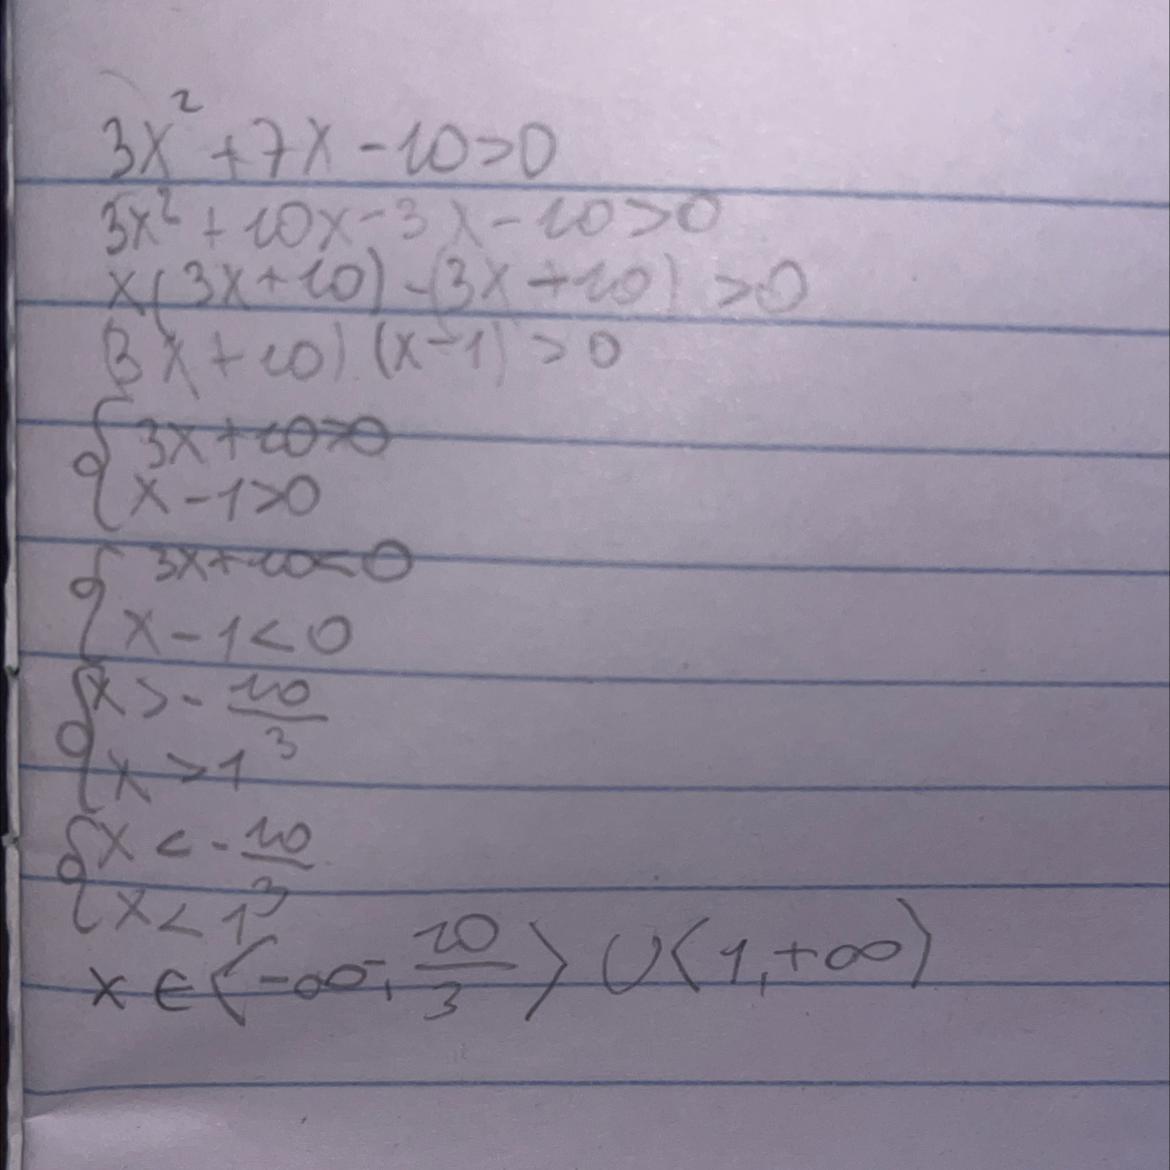 3x² + 7x - 10 > 0
3x² + 10x - 3x - 10 > 0
x(3x + 10) - (3x + 10) > 0
(3x + 10) (x - 1) > 0
{ 3x + 10 > 0
x - 1 > 0
{ 3x + 10 < 0
x - 1 < 0
{ x > - 10/3
x > 1
{ x < - 10/3
x < 1
x ∈ ⟨-∞, -10/3⟩ ∪ ⟨1, +∞⟩